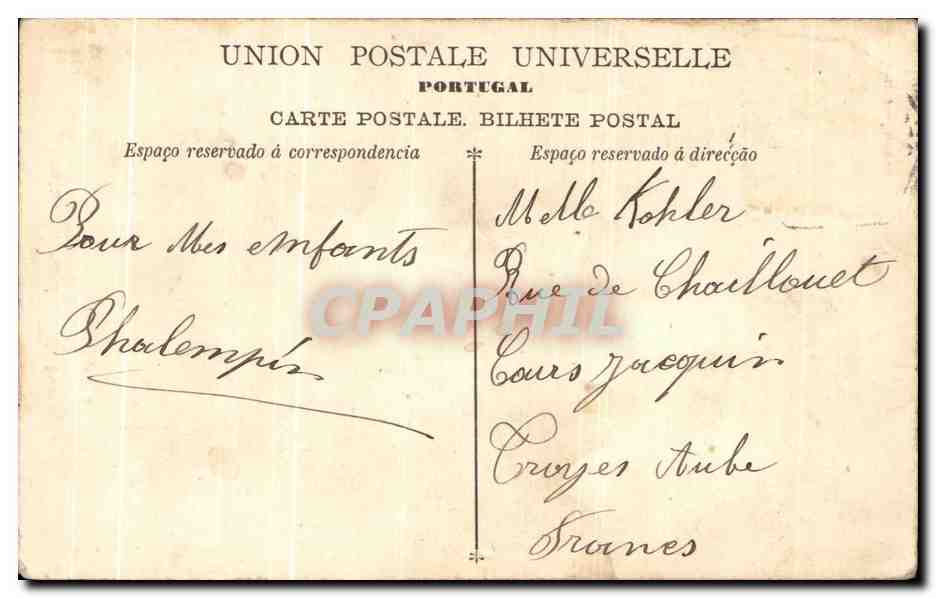 UNION POSTALE UNIVERSELLE
PORTUGAL
CARTE POSTALE. BILHETE POSTAL
Espaço reservado á correspondencia
Espaço reservado á direcção
Pour Mes enfants
Phalempin
Melle Kohler
Rue de Chaillouet
Cours Jacquin
Troyes Aube
France
CPAPHIL